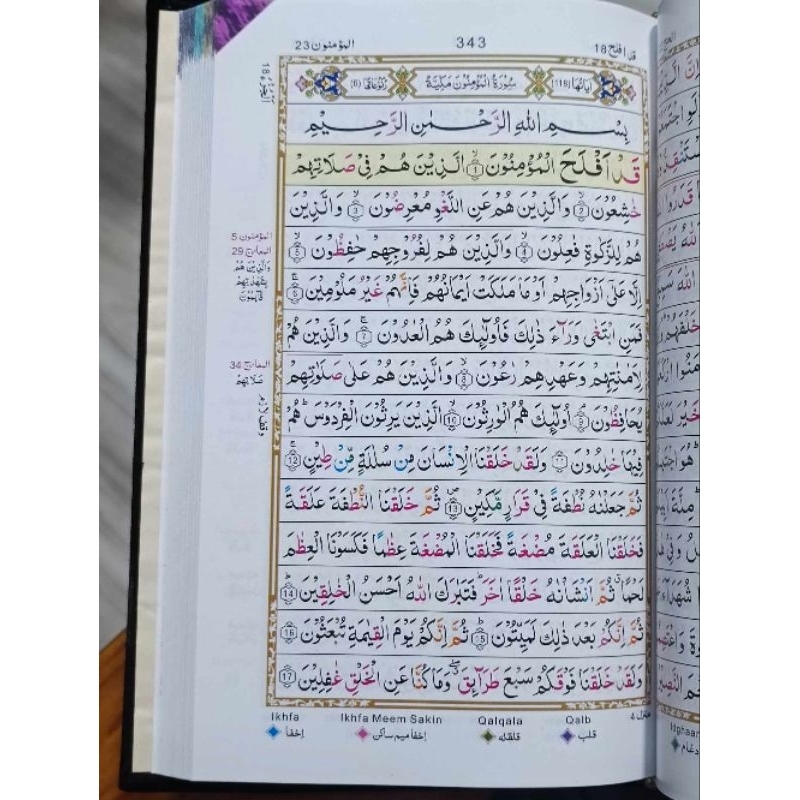 المؤمنون 23
343
قد افلح 18
اٰیاتها (118)
سُوْرَةُ الْمُؤْمِنُوْنَ مَكِّيَّةٌ
رُكُوْعَاتُهَا (6)
بِسْمِ اللّٰهِ الرَّحْمٰنِ الرَّحِيْمِ
قَدْ اَفْلَحَ الْمُؤْمِنُوْنَ ۙ﴿1﴾ الَّذِيْنَ هُمْ فِيْ صَلَاتِهِمْ
خٰشِعُوْنَ ۙ﴿2﴾ وَالَّذِيْنَ هُمْ عَنِ اللَّغْوِ مُعْرِضُوْنَ ۙ﴿3﴾ وَالَّذِيْنَ
هُمْ لِلزَّكٰوةِ فٰعِلُوْنَ ۙ﴿4﴾ وَالَّذِيْنَ هُمْ لِفُرُوْجِهِمْ حٰفِظُوْنَ ۙ﴿5﴾
اِلَّا عَلٰٓى اَزْوَاجِهِمْ اَوْ مَا مَلَكَتْ اَيْمَانُهُمْ فَاِنَّهُمْ غَيْرُ مَلُوْمِيْنَ ۚ﴿6﴾
فَمَنِ ابْتَغٰى وَرَآءَ ذٰلِكَ فَاُولٰٓئِكَ هُمُ الْعٰدُوْنَ ۚ﴿7﴾ وَالَّذِيْنَ هُمْ
لِاَمٰنٰتِهِمْ وَعَهْدِهِمْ رٰعُوْنَ ۙ﴿8﴾ وَالَّذِيْنَ هُمْ عَلٰى صَلَوٰتِهِمْ
يُحَافِظُوْنَ ۘ﴿9﴾ اُولٰٓئِكَ هُمُ الْوٰرِثُوْنَ ۙ﴿10﴾ الَّذِيْنَ يَرِثُوْنَ الْفِرْدَوْسَ ؕ هُمْ
فِيْهَا خٰلِدُوْنَ ﴿11﴾ وَلَقَدْ خَلَقْنَا الْاِنْسَانَ مِنْ سُلٰلَةٍ مِّنْ طِيْنٍ ۚ﴿12﴾
ثُمَّ جَعَلْنٰهُ نُطْفَةً فِيْ قَرَارٍ مَّكِيْنٍ ۪﴿13﴾ ثُمَّ خَلَقْنَا النُّطْفَةَ عَلَقَةً
فَخَلَقْنَا الْعَلَقَةَ مُضْغَةً فَخَلَقْنَا الْمُضْغَةَ عِظٰمًا فَكَسَوْنَا الْعِظٰمَ
لَحْمًا ۗ ثُمَّ اَنْشَاْنٰهُ خَلْقًا اٰخَرَ ؕ فَتَبٰرَكَ اللّٰهُ اَحْسَنُ الْخٰلِقِيْنَ ؕ﴿14﴾
ثُمَّ اِنَّكُمْ بَعْدَ ذٰلِكَ لَمَيِّتُوْنَ ؕ﴿15﴾ ثُمَّ اِنَّكُمْ يَوْمَ الْقِيٰمَةِ تُبْعَثُوْنَ ﴿16﴾
وَلَقَدْ خَلَقْنَا فَوْقَكُمْ سَبْعَ طَرَآئِقَ ۖ وَمَا كُنَّا عَنِ الْخَلْقِ غٰفِلِيْنَ ﴿17﴾
الجزء 18
المؤمنون 5
المعارج 29
والذين هم
المعارج 34
صلاتهم
وقف لازم
منزل 4
Ikhfa
Ikhfa Meem Sakin
Qalqala
Qalb
اخفأ
اخفأ میم ساکن
قلقله
قلب